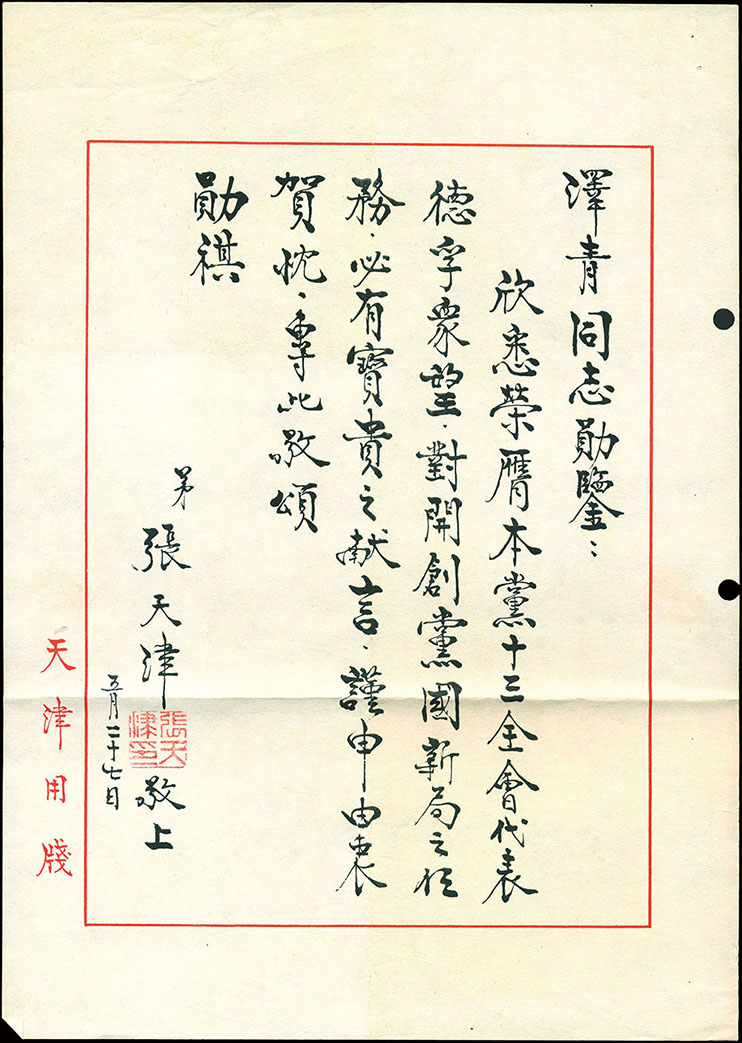 澤青同志勛鑒：
欣悉榮膺本黨十三全會代表
德孚衆望．對開創黨國新局之任
務．必有寶貴之献言．謹申由衷
賀忱、專此敬頌
勛祺
弟 張天津 敬上
張天津印
五月二十七日
天津用牋